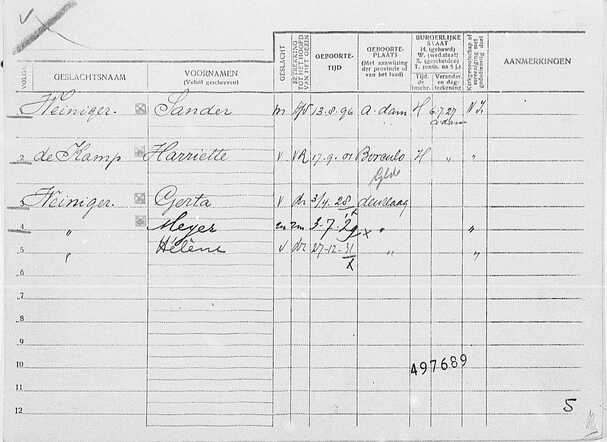 VOLGNo. GESLACHTSNAAM VOORNAMEN (Voluit geschreven) GESLACHT BETREKKING TOT HET HOOFD VAN HET GEZIN GEBOORTE-TIJD GEBOORTE-PLAATS (Met aanwijzing der provincie of van het land) BURGERLIJKE STAAT H. (gehuwd) W. (wed.staat) S. (gescheiden) T. (ontb. na 5 j.) Tijd. de inschr. Verander. en dag-teekening Kerkgenootschap of vereeniging met godsdienstig doel AANMERKINGEN
Sander m Hfd 13.8.96 A-dam H 6.7.27 A-dam N I.
2 de Kamp Harriette v VR 17-9-01 Borculo H " "
Gld.
3 Gerta v dr 3/4.28 den Haag "
4 " Meyer m zn 3-7-29 x " "
5 " Hélène v dr 27-12-31 " "
6
7
8
9
10 497689
11
12 5